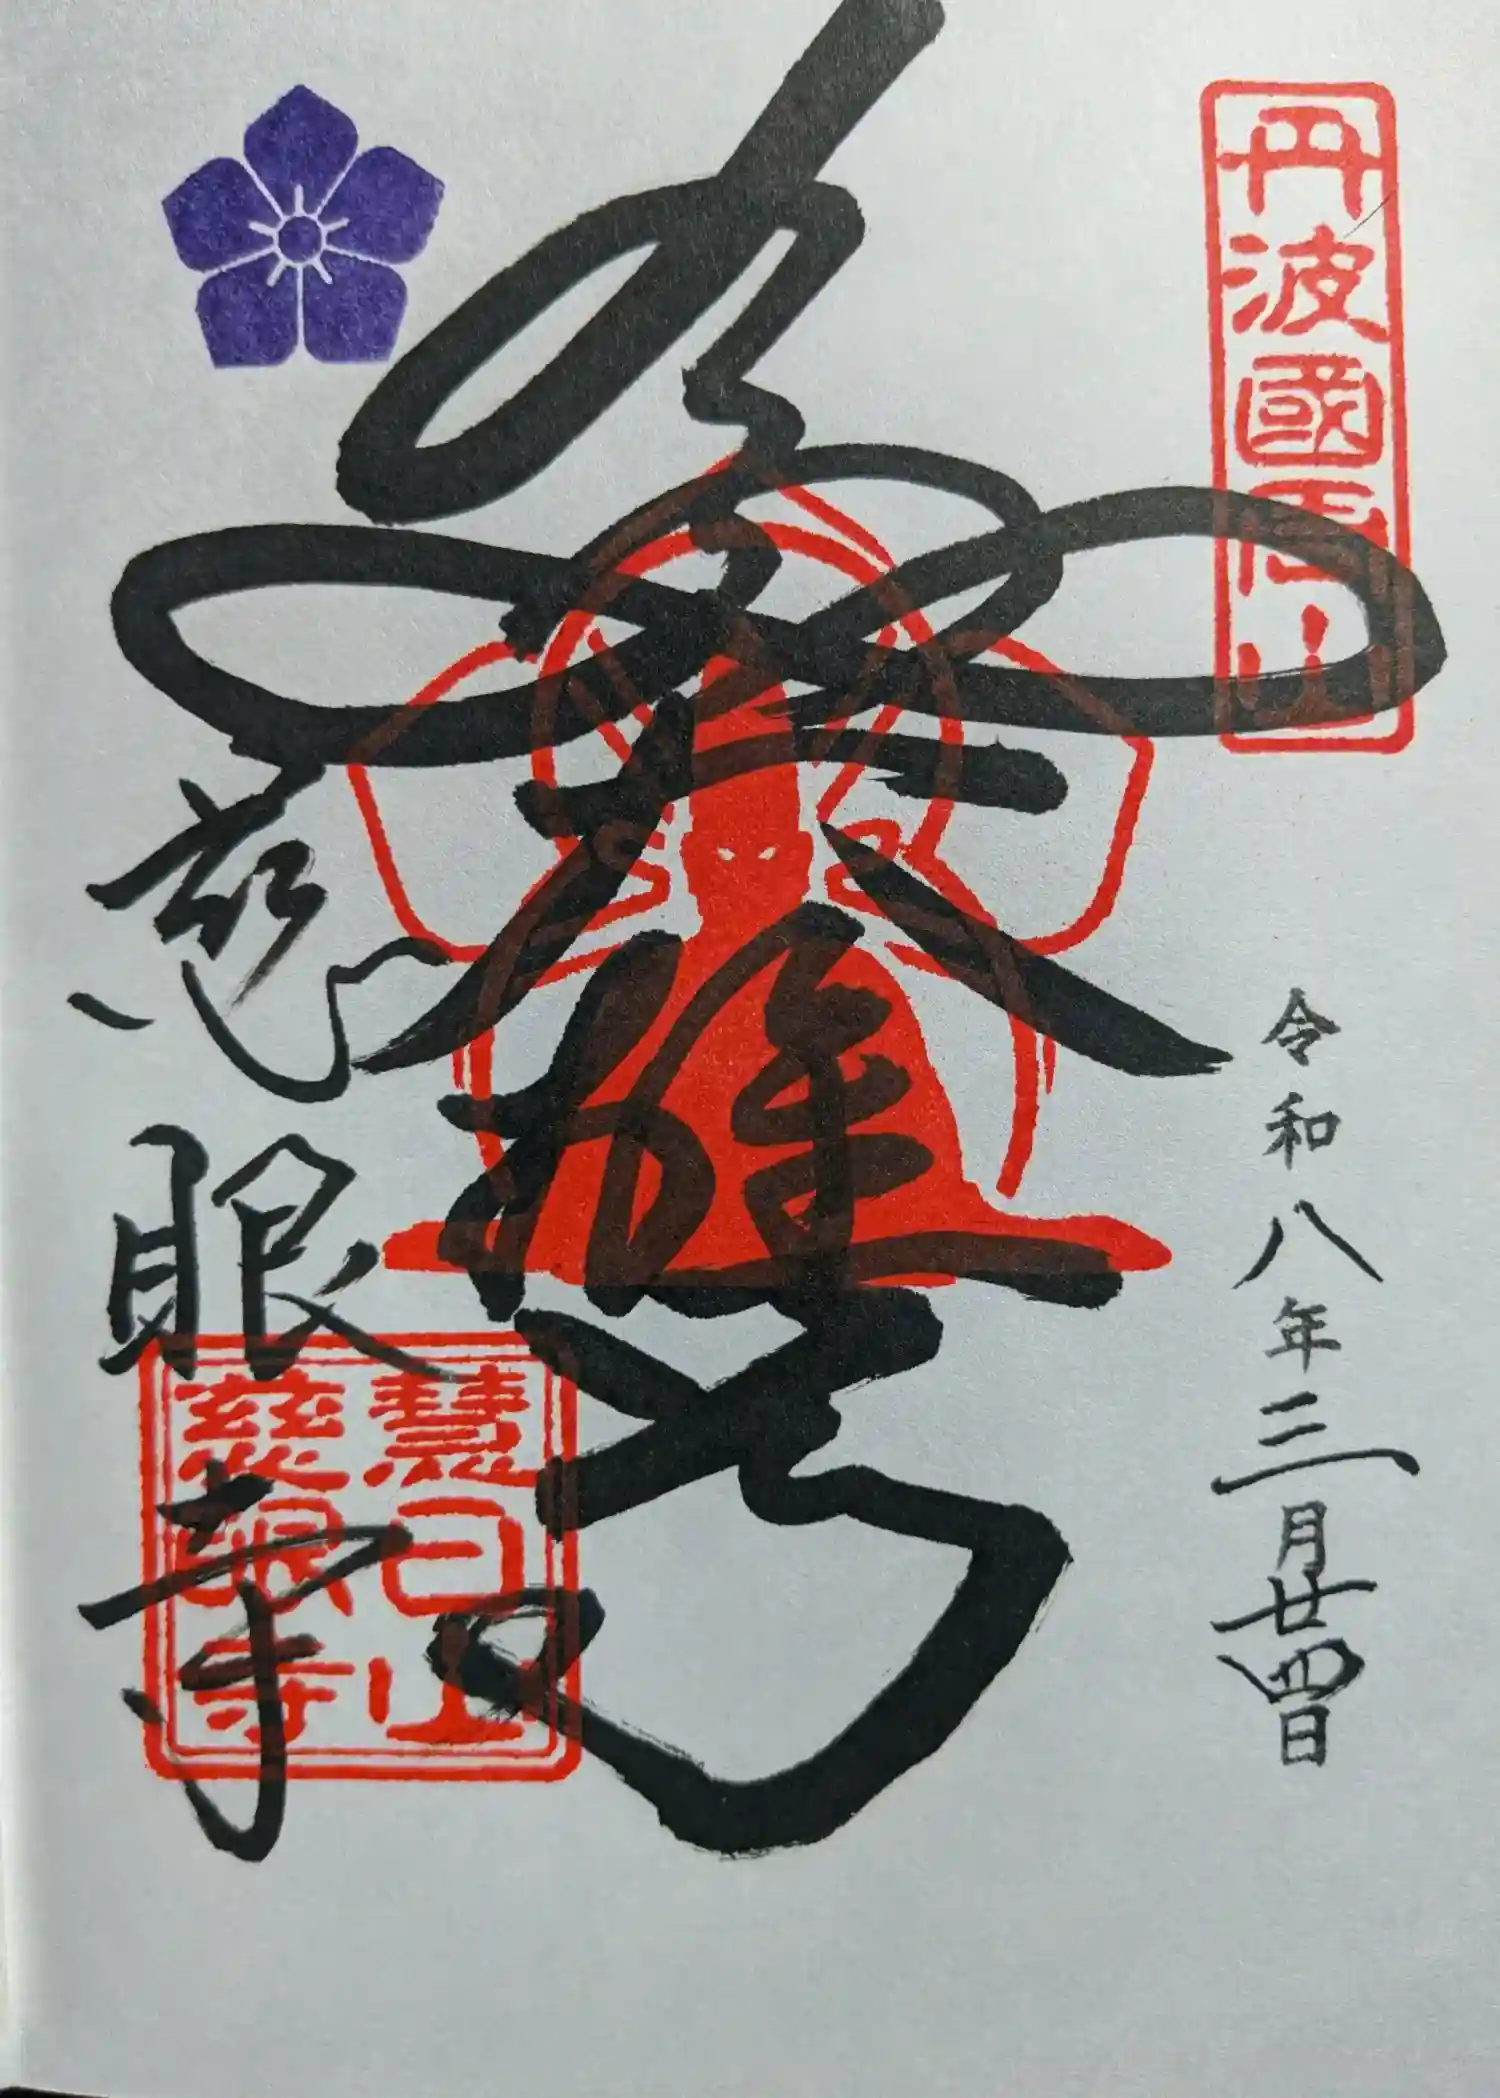 丹波國周山
令和八年三月廿四日
大雄尊
慈眼寺
慧日山
慈眼寺